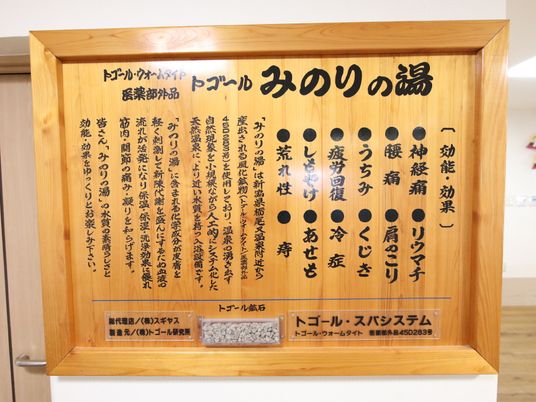 トゴール・ウォームタイト
医薬部外品
トゴール みのりの湯
〔効能・効果〕
●神経痛 ●リウマチ
●腰痛 ●肩のこり
●うちみ ●くじき
●疲労回復 ●冷症
●しもやけ ●あせも
●荒れ性 ●痔
「みのりの湯」は新潟県栃尾又温泉附近から
産出される風化鉱物（トゴール・ウォームタイト／医薬部外品
45D283号）を使用しており、温泉の湧き出す
自然現象を小規模ながら人工的にシステム化した
天然温泉により近い水質を持つ入浴設備です。
「みのりの湯」に含まれる化学成分が皮膚を
軽く刺激して新陳代謝を盛んにするため血液の
流れが活発になり保温・保湿・洗浄効果に優れ
筋肉・関節の痛み・凝りを和らげます。
皆さん、「みのりの湯」の水質の素晴らしさと
効能・効果をゆっくりとお楽しみ下さい。
トゴール鉱石
総代理店／（株）スギヤス
製造元／（株）トゴール研究所
トゴール・スパシステム
トゴール・ウォームタイト 医薬部外品45D283号